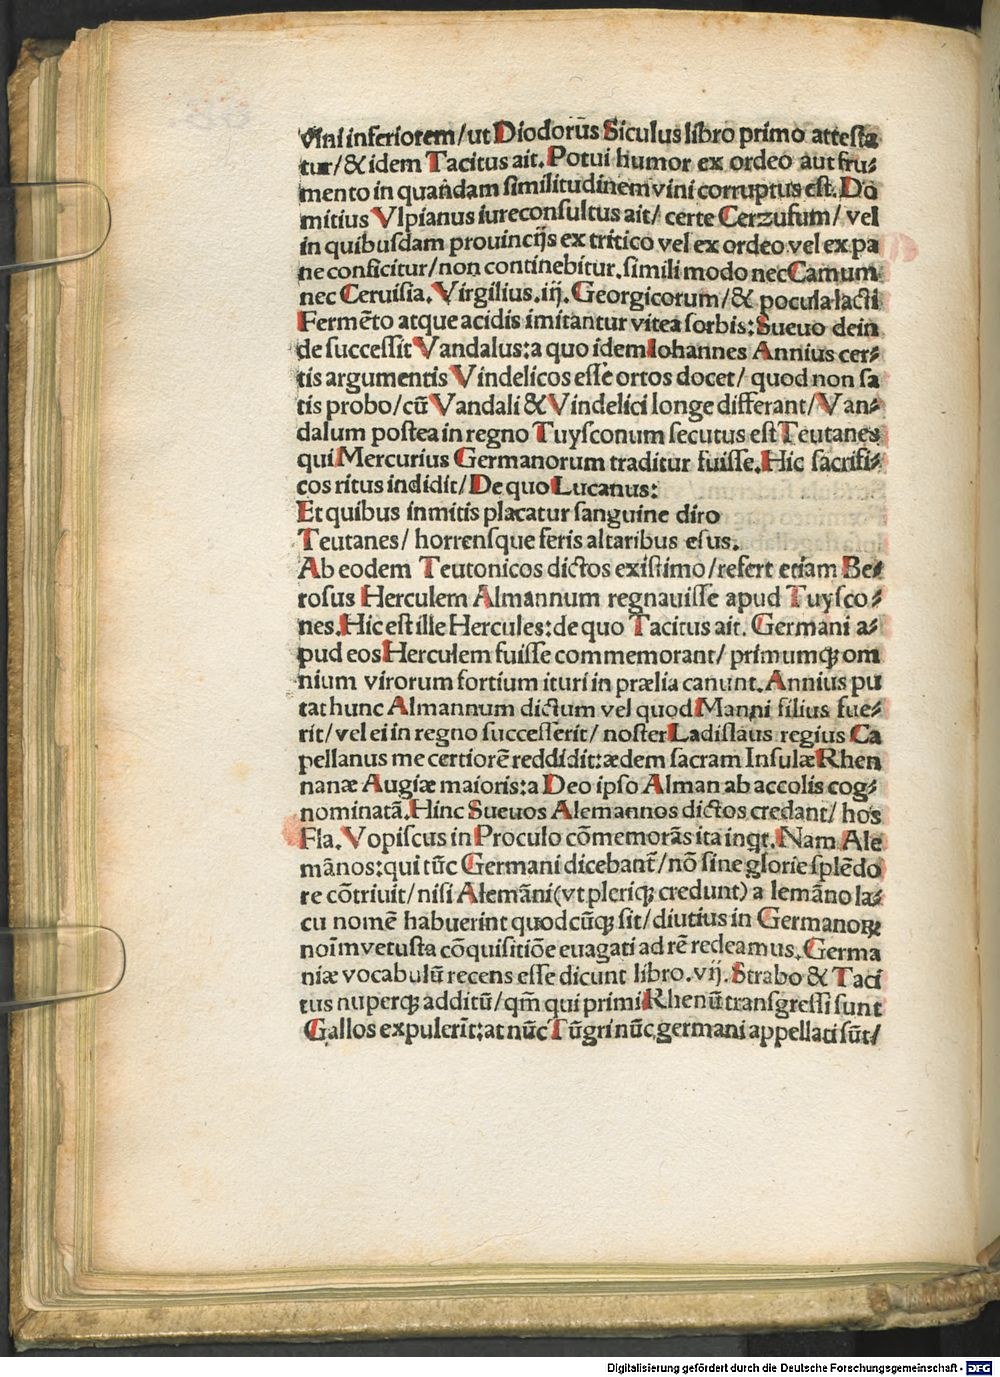 vini inferiorem/ut Diodorus Siculus libro primo attesta
tur/&idem Tacitus ait. Potui humor ex ordeo aut fru⸗
mento in quandam similitudinem vini corruptus est. Do
mitius Vlpianus iureconsultus ait/ certe Cerzufum/ vel
in quibusdam prouincijs ex tritico vel ex ordeo vel ex pa
ne conficitur/non continebitur. simili modo nec Camum
nec Ceruisia. Virgilius .iij. Georgicorum/& pocula lacti
Fermēto atque acidis imitantur vitea sorbis: Sueuo dein
de successit Vandalus: a quo idem Iohannes Annius cer⸗
tis argumentis Vindelicos esse ortos docet/ quod non sa
tis probo/cū Vandali & Vindelici longe differant/ Van⸗
dalum postea in regno Tuysconum secutus est Teutanes
qui Mercurius Germanorum traditur fuisse. Hic sacrifi⸗
cos ritus indidit/ De quo Lucanus:
Et quibus inmitis placatur sanguine diro
Teutanes/ horrensque feris altaribus esus.
Ab eodem Teutonicos dictos existimo/refert etiam Be⸗
rosus Herculem Almannum regnauisse apud Tuysco⸗
nes. Hic est ille Hercules: de quo Tacitus ait. Germani a⸗
pud eos Herculem fuisse commemorant/ primumqꝫ om
nium virorum fortium ituri in prælia canunt. Annius pu
tat hunc Almannum dictum vel quod Manni filius fue⸗
rit/ vel ei in regno successerit/ noster Ladislaus regius Ca
pellanus me certiorē reddidit: ædem sacram Insulæ Rhen
nanæ Augiæ maioris: a Deo ipso Alman ab accolis cog⸗
nominatā. Hinc Sueuos Alemannos dictos credant/ hos
Fla. Vopiscus in Proculo cōmemorās ita inqt. Nam Ale
mānos: qui tūc Germani dicebant̄/ nō sine glorie splēdo
re cōtriuit/ nisi Alemāni (vt pleriqꝫ credunt) a lemāno la⸗
cu nomē habuerint quodcūqꝫ sit/ diutius in Germanoꝝ
noīm vetusta cōquisitiōe euagati ad rē redeamus. Germa
niæ vocabulū recens esse dicunt libro .vij. Strabo & Taci
tus nuperqꝫ additū/ qm̄ qui primi Rhenū transgressi sunt
Gallos expulerīt: at nūc Tūgri nūc germani appellati sūt/
Digitalisierung gefördert durch die Deutsche Forschungsgemeinschaft - DFG